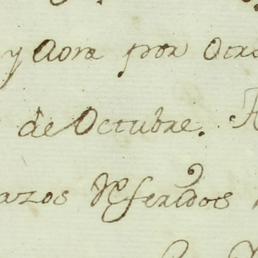 y Aora por Otra
de Octubre.
azos Referidos